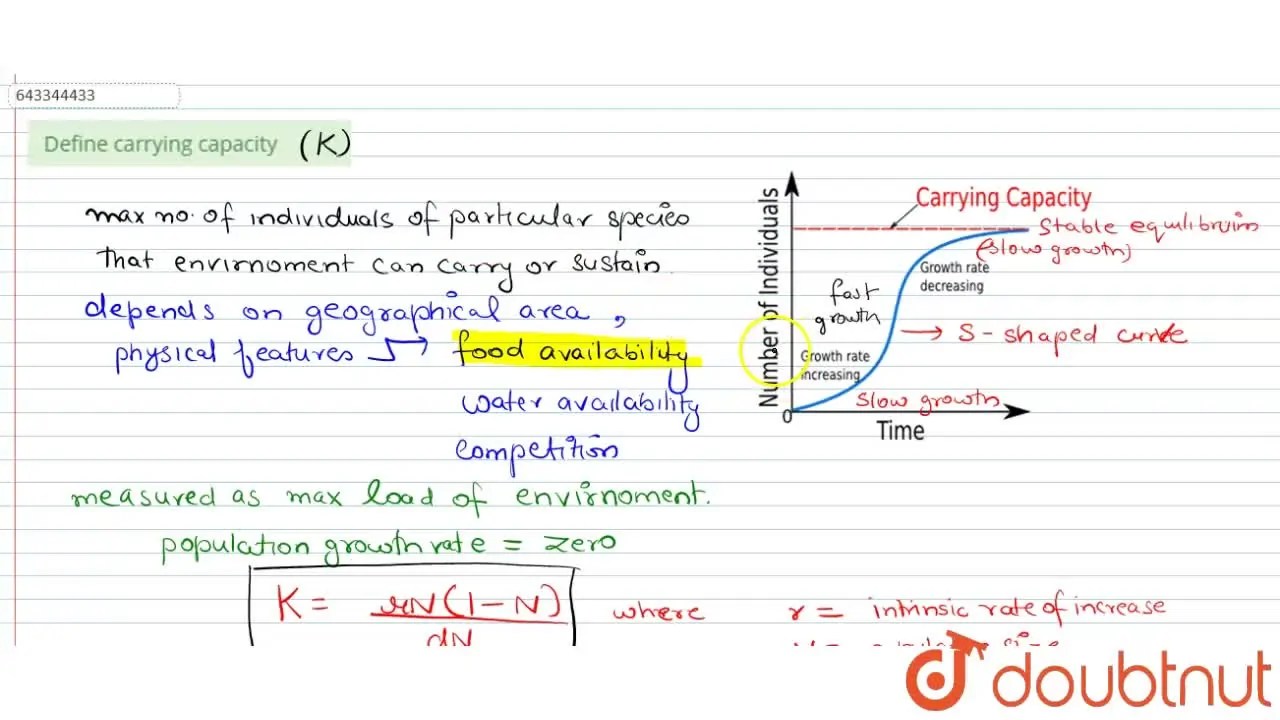 643344433
Define carrying capacity (K)
max no. of individuals of particular species
that envirnoment can carry or sustain.
depends on geographical area,
physical features → food availability
water availability
competition
measured as max load of envirnoment.
population growth rate = zero
K = rN(1-N)
dN
where r = intrinsic rate of increase
Number of Individuals
Carrying Capacity
Stable equilibrium
(slow growth)
Growth rate
decreasing
fast
growth
→ S-shaped curve
Growth rate
increasing
slow growth
0
Time
doubtnut